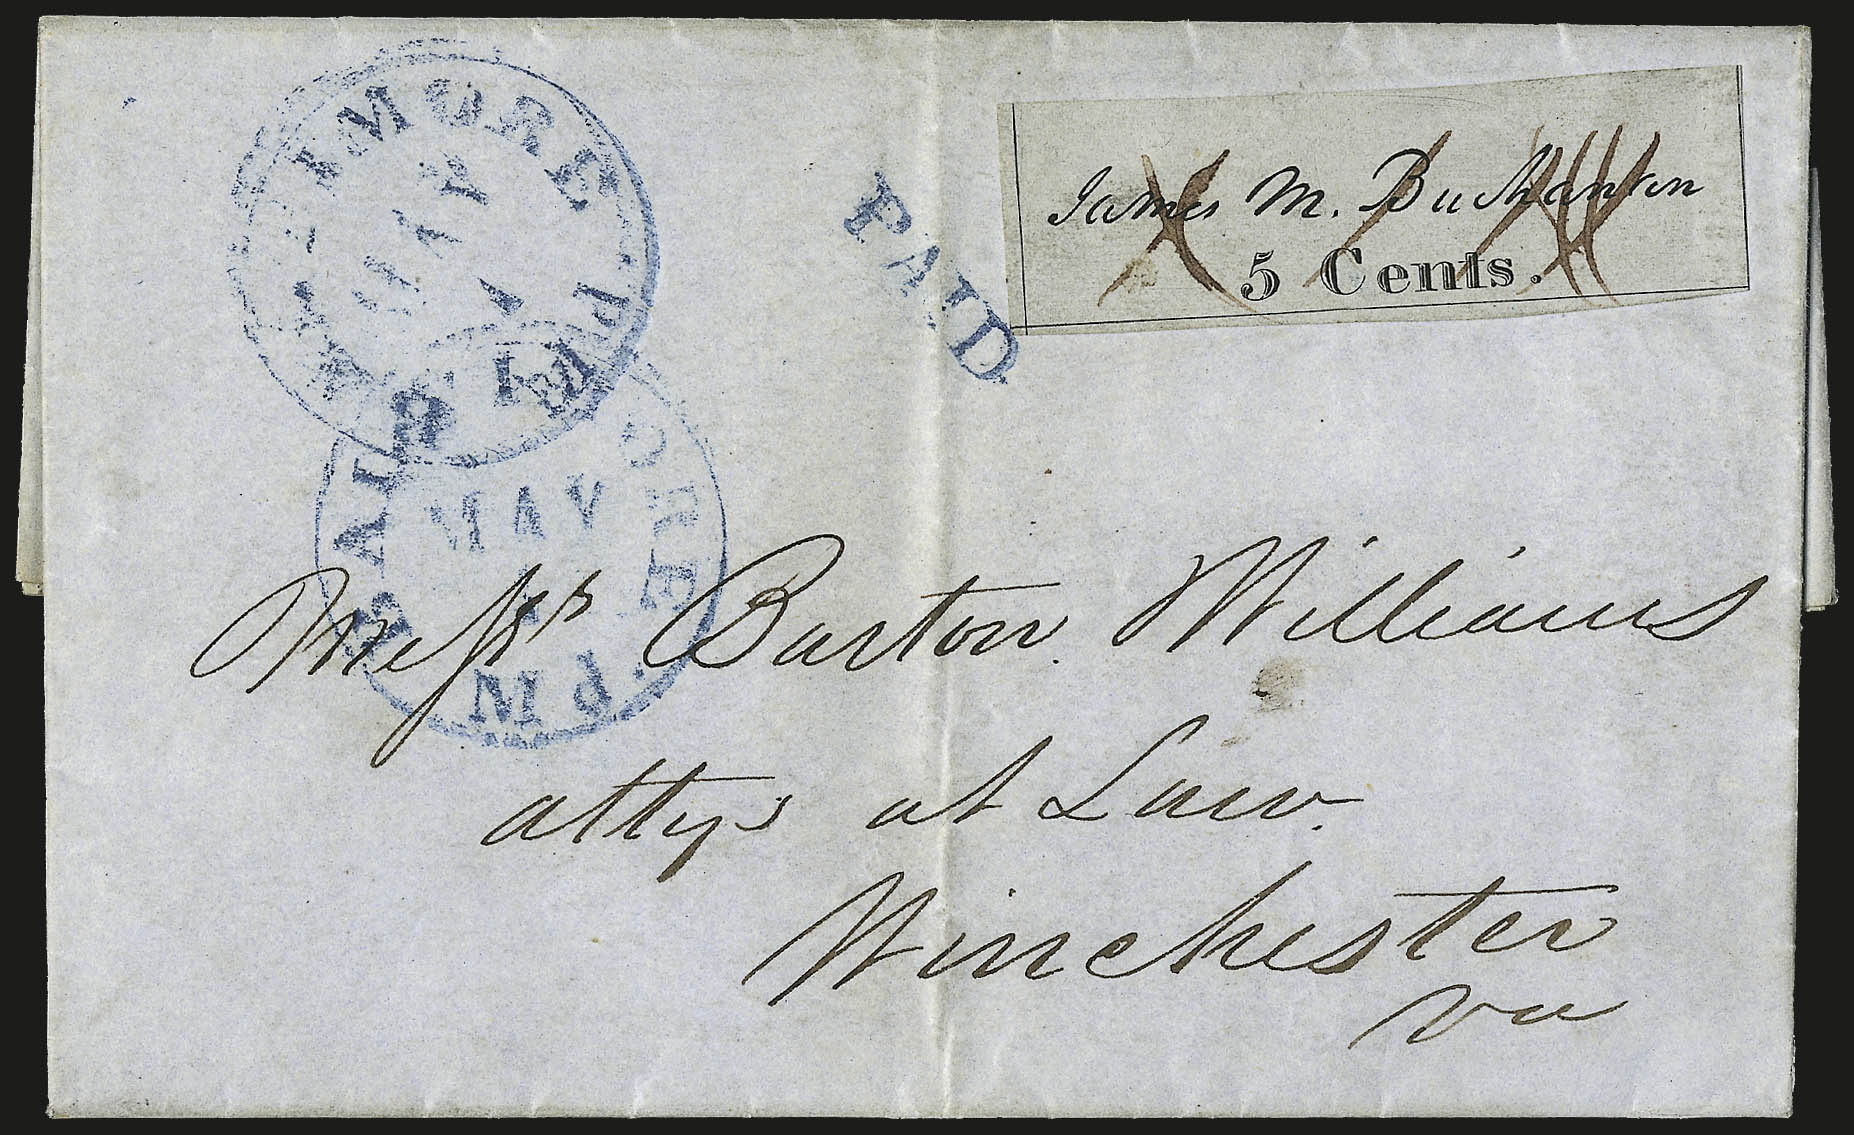 BALTIMORE Md.
MAY
1
PAID
James M. Buchanan
5 Cents.
BALTIMORE Md.
MAY
1
Messrs Barton Williams
attys at Law.
Winchester
Va